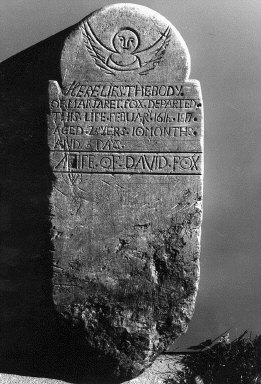 HERE LIES THE BODY
OF MARGARET FOX DEPARTED
THIS LIFE FEBUAR
AGED YERS 10 MONTHS
AND DAS
WIFE OF DAVID FOX